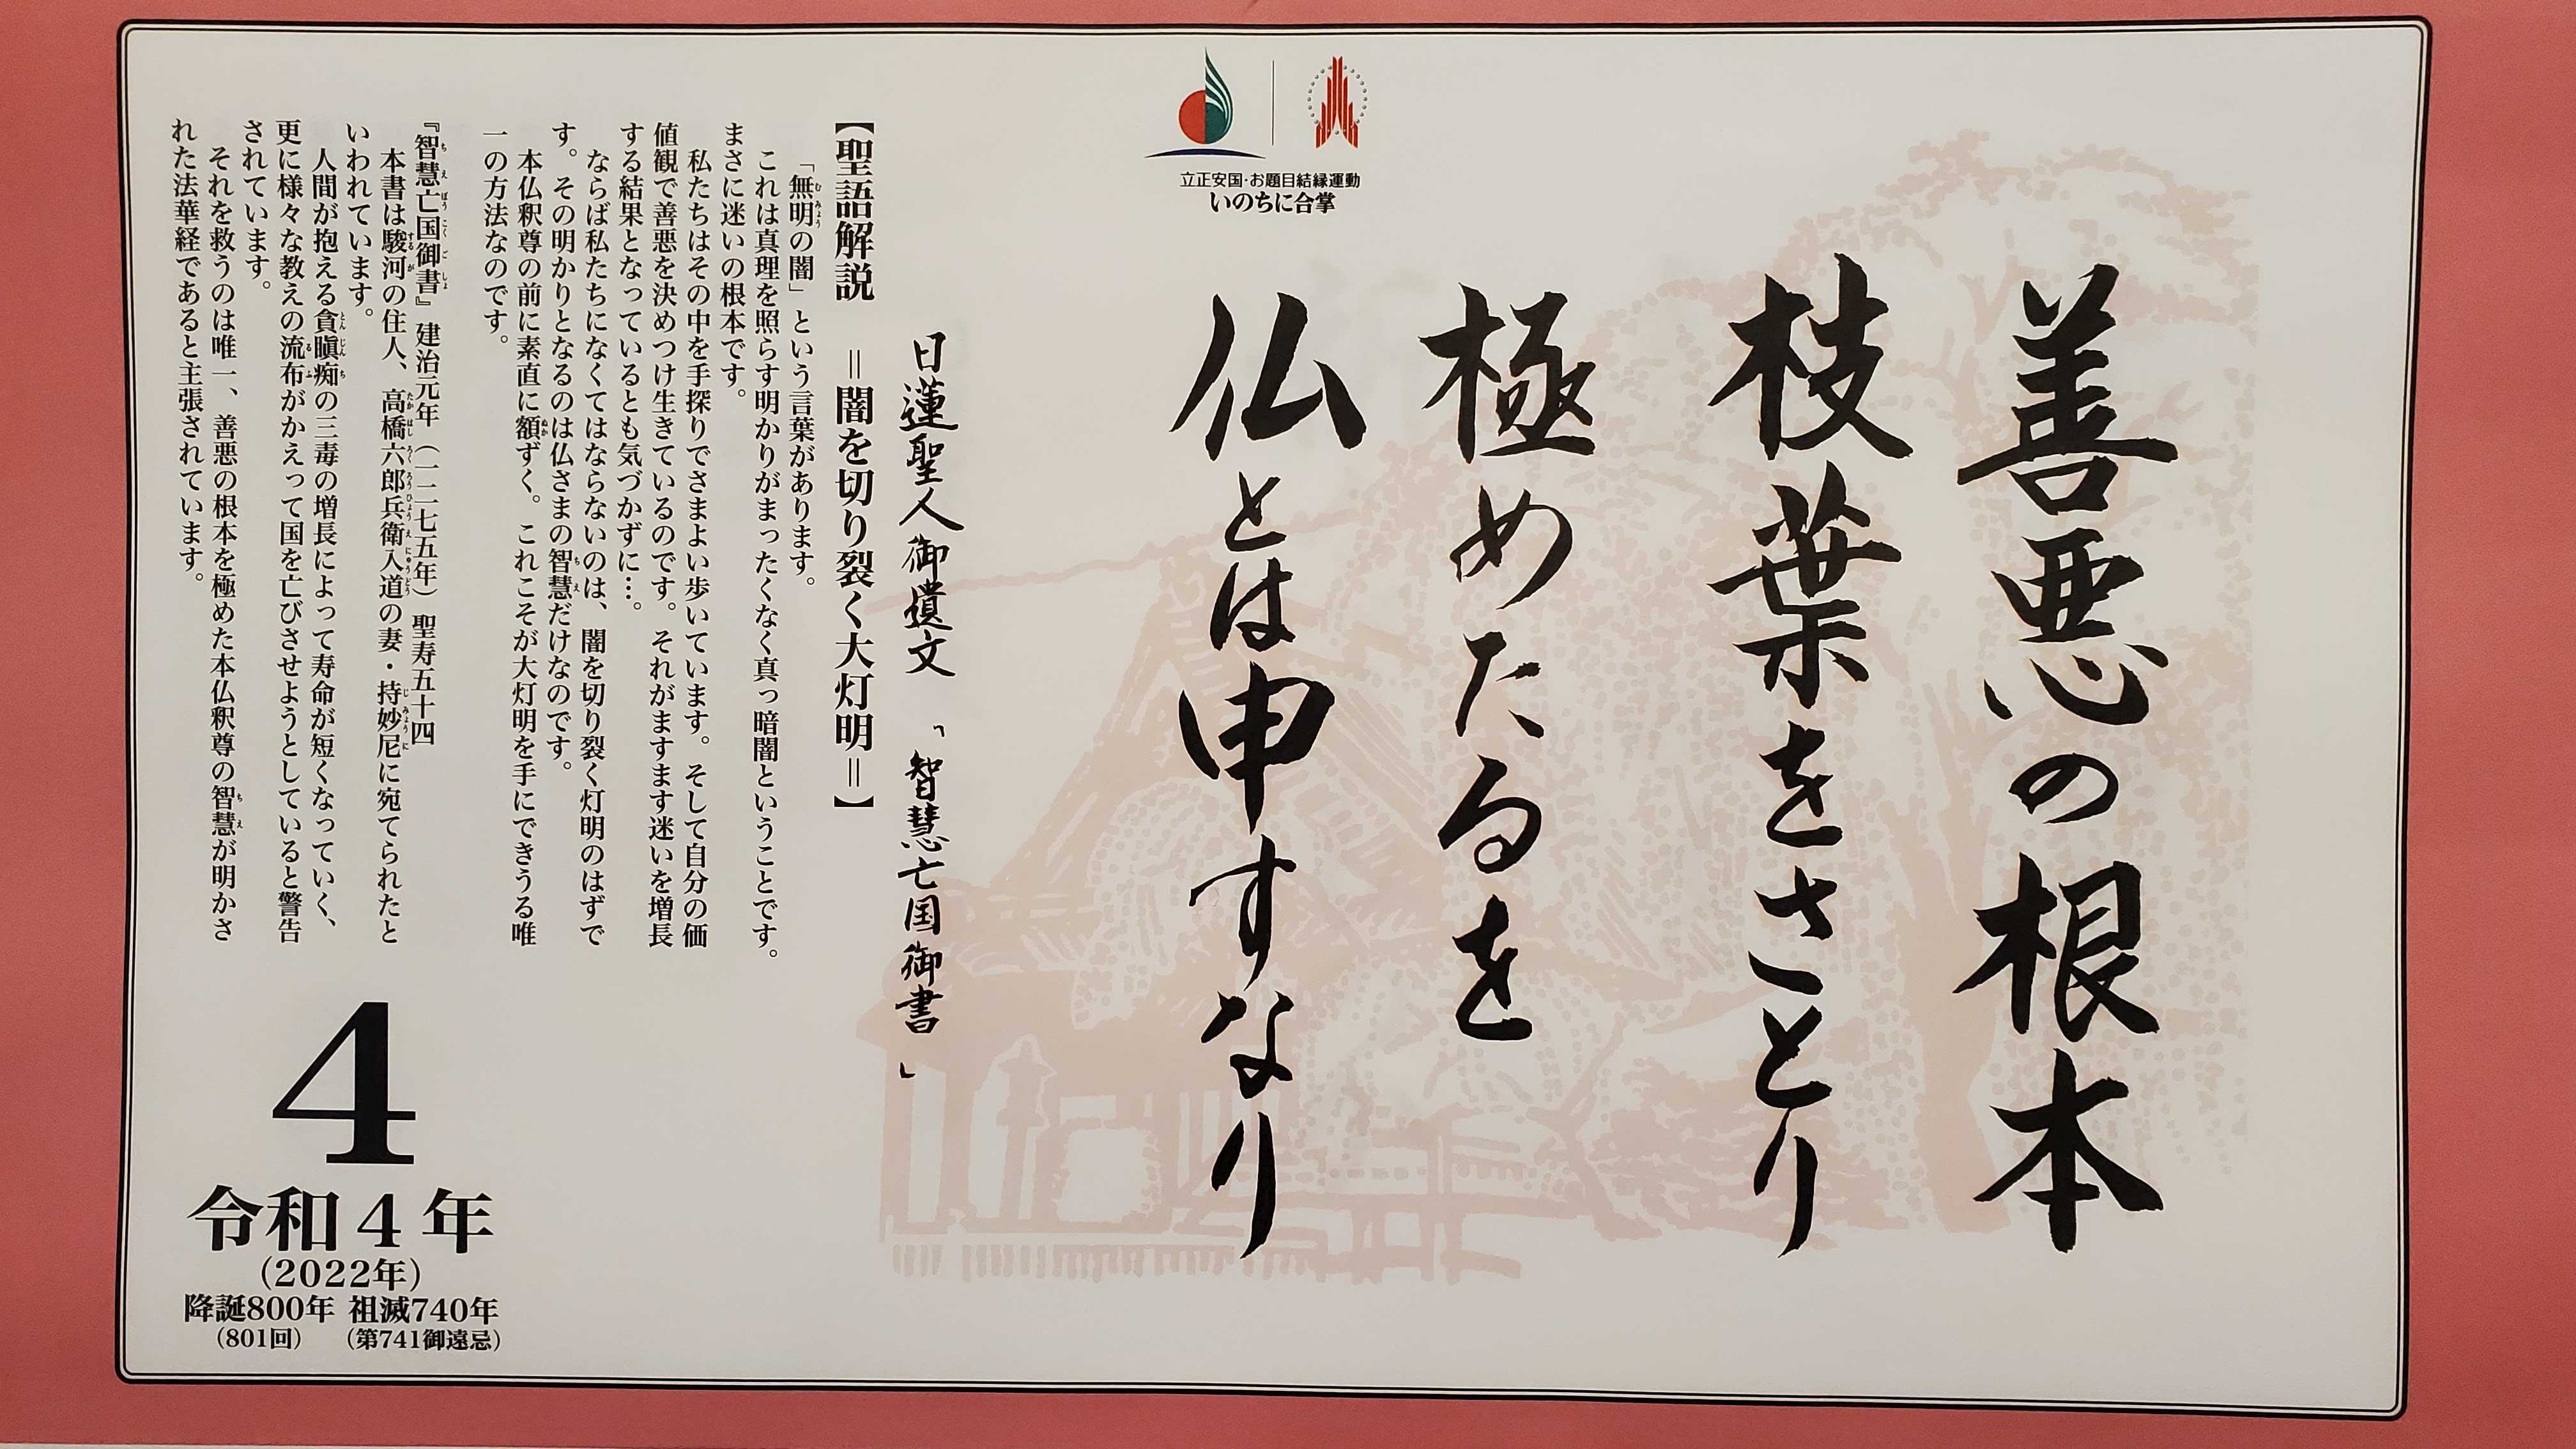 立正安国・お題目結縁運動
いのちに合掌
善悪の根本
枝葉をさとり
極めたるを
仏とは申すなり
日蓮聖人御遺文「智慧亡国御書」
【聖語解説 =闇を切り裂く大灯明=】
「無明の闇」という言葉があります。
これは真理を照らす明かりがまったくなく真っ暗闇ということです。
まさに迷いの根本です。
私たちはその中を手探りでさまよい歩いています。そして自分の価
値観で善悪を決めつけ生きているのです。それがますます迷いを増長
する結果となっているとも気づかずに…。
ならば私たちになくてはならないのは、闇を切り裂く灯明のはずで
す。その明かりとなるのは仏さまの智慧だけなのです。
本仏釈尊の前に素直に額ずく。これこそが大灯明を手にできうる唯
一の方法なのです。
『智慧亡国御書』建治元年（一二七五年）聖寿五十四
本書は駿河の住人、高橋六郎兵衛入道の妻・持妙尼に宛てられたと
いわれています。
人間が抱える貪瞋痴の三毒の増長によって寿命が短くなっていく、
更に様々な教えの流布がかえって国を亡びさせようとしていると警告
されています。
それを救うのは唯一、善悪の根本を極めた本仏釈尊の智慧が明かさ
れた法華経であると主張されています。
4
令和4年
(2022年)
降誕800年 祖滅740年
(801回) (第741御遠忌)